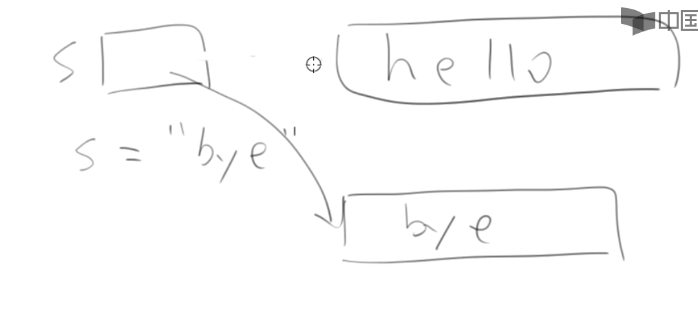 中国
s
hello
s = "bye"
bye